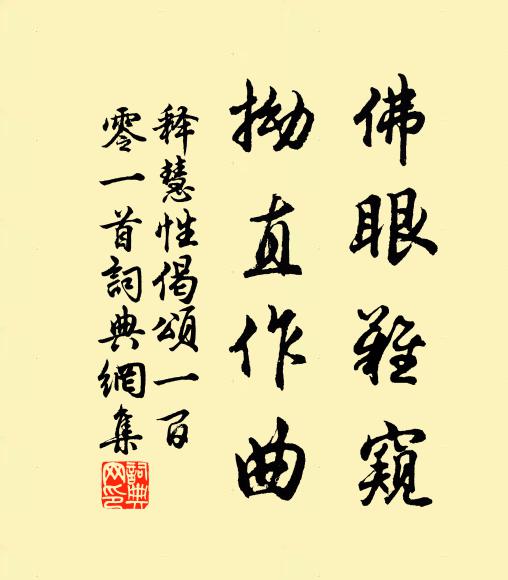 佛眼難窺
拗直作曲
释慧性偈頌一百
零一首詞典網集
詞典網印